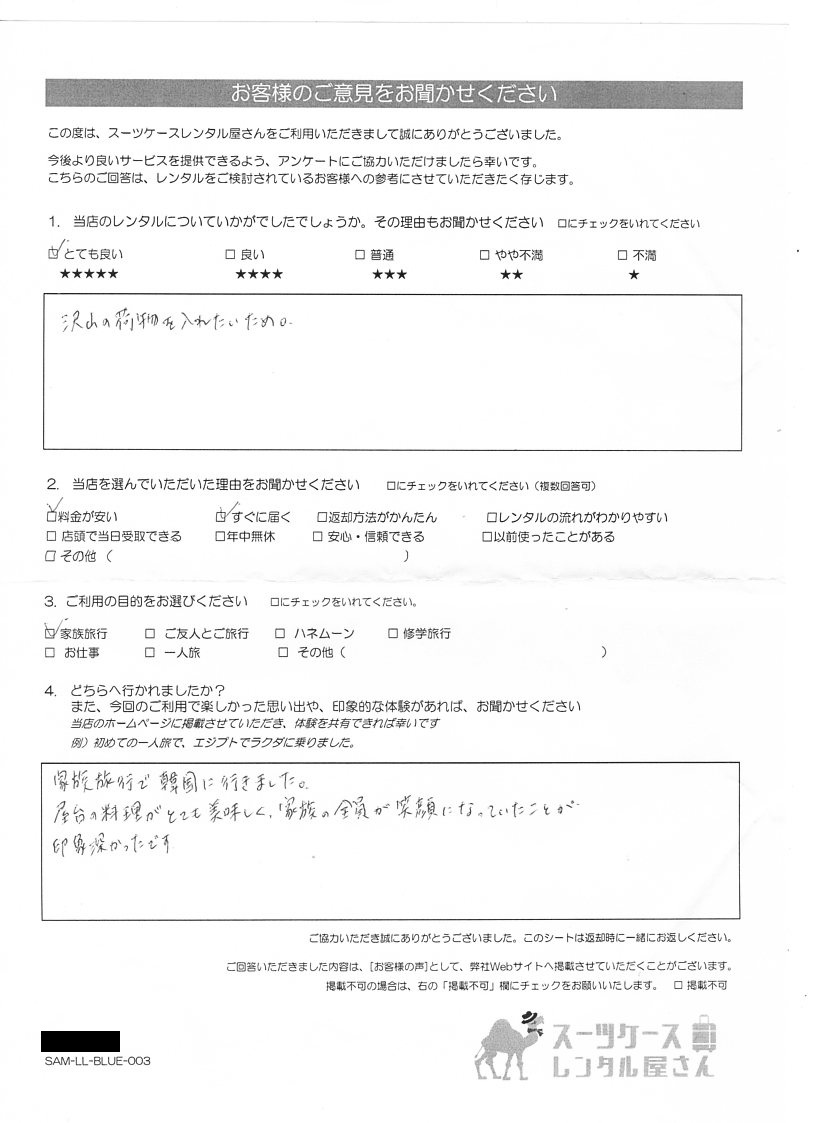 お客様のご意見をお聞かせください
この度は、スーツケースレンタル屋さんをご利用いただきまして誠にありがとうございました。
今後より良いサービスを提供できるよう、アンケートにご協力いただけましたら幸いです。
こちらのご回答は、レンタルをご検討されているお客様への参考にさせていただきたく存じます。
1. 当店のレンタルについていかがでしたでしょうか。その理由もお聞かせください □にチェックをいれてください
☑とても良い □ 良い □ 普通 □ やや不満 □ 不満
★★★★★ ★★★★ ★★★ ★★ ★
沢山の荷物を入れたいため。
2. 当店を選んでいただいた理由をお聞かせください □にチェックをいれてください（複数回答可）
☑料金が安い ☑すぐに届く □返却方法がかんたん □レンタルの流れがわかりやすい
□ 店頭で当日受取できる □年中無休 □ 安心・信頼できる □以前使ったことがある
□ その他（ ）
3. ご利用の目的をお選びください □にチェックをいれてください。
☑家族旅行 □ ご友人とご旅行 □ ハネムーン □ 修学旅行
□ お仕事 □ 一人旅 □ その他（ ）
4. どちらへ行かれましたか？
また、今回のご利用で楽しかった思い出や、印象的な体験があれば、お聞かせください
当店のホームページに掲載させていただき、体験を共有できれば幸いです
例）初めての一人旅で、エジプトでラクダに乗りました。
家族旅行で韓国に行きました。
屋台の料理がとても美味しく、家族の全員が笑顔になっていたことが
印象深かったです
ご協力いただき誠にありがとうございました。このシートは返却時に一緒にお返しください。
ご回答いただきました内容は、[お客様の声]として、弊社Webサイトへ掲載させていただくことがございます。
掲載不可の場合は、右の「掲載不可」欄にチェックをお願いいたします。 □ 掲載不可
SAM-LL-BLUE-003
スーツケース
レンタル屋さん